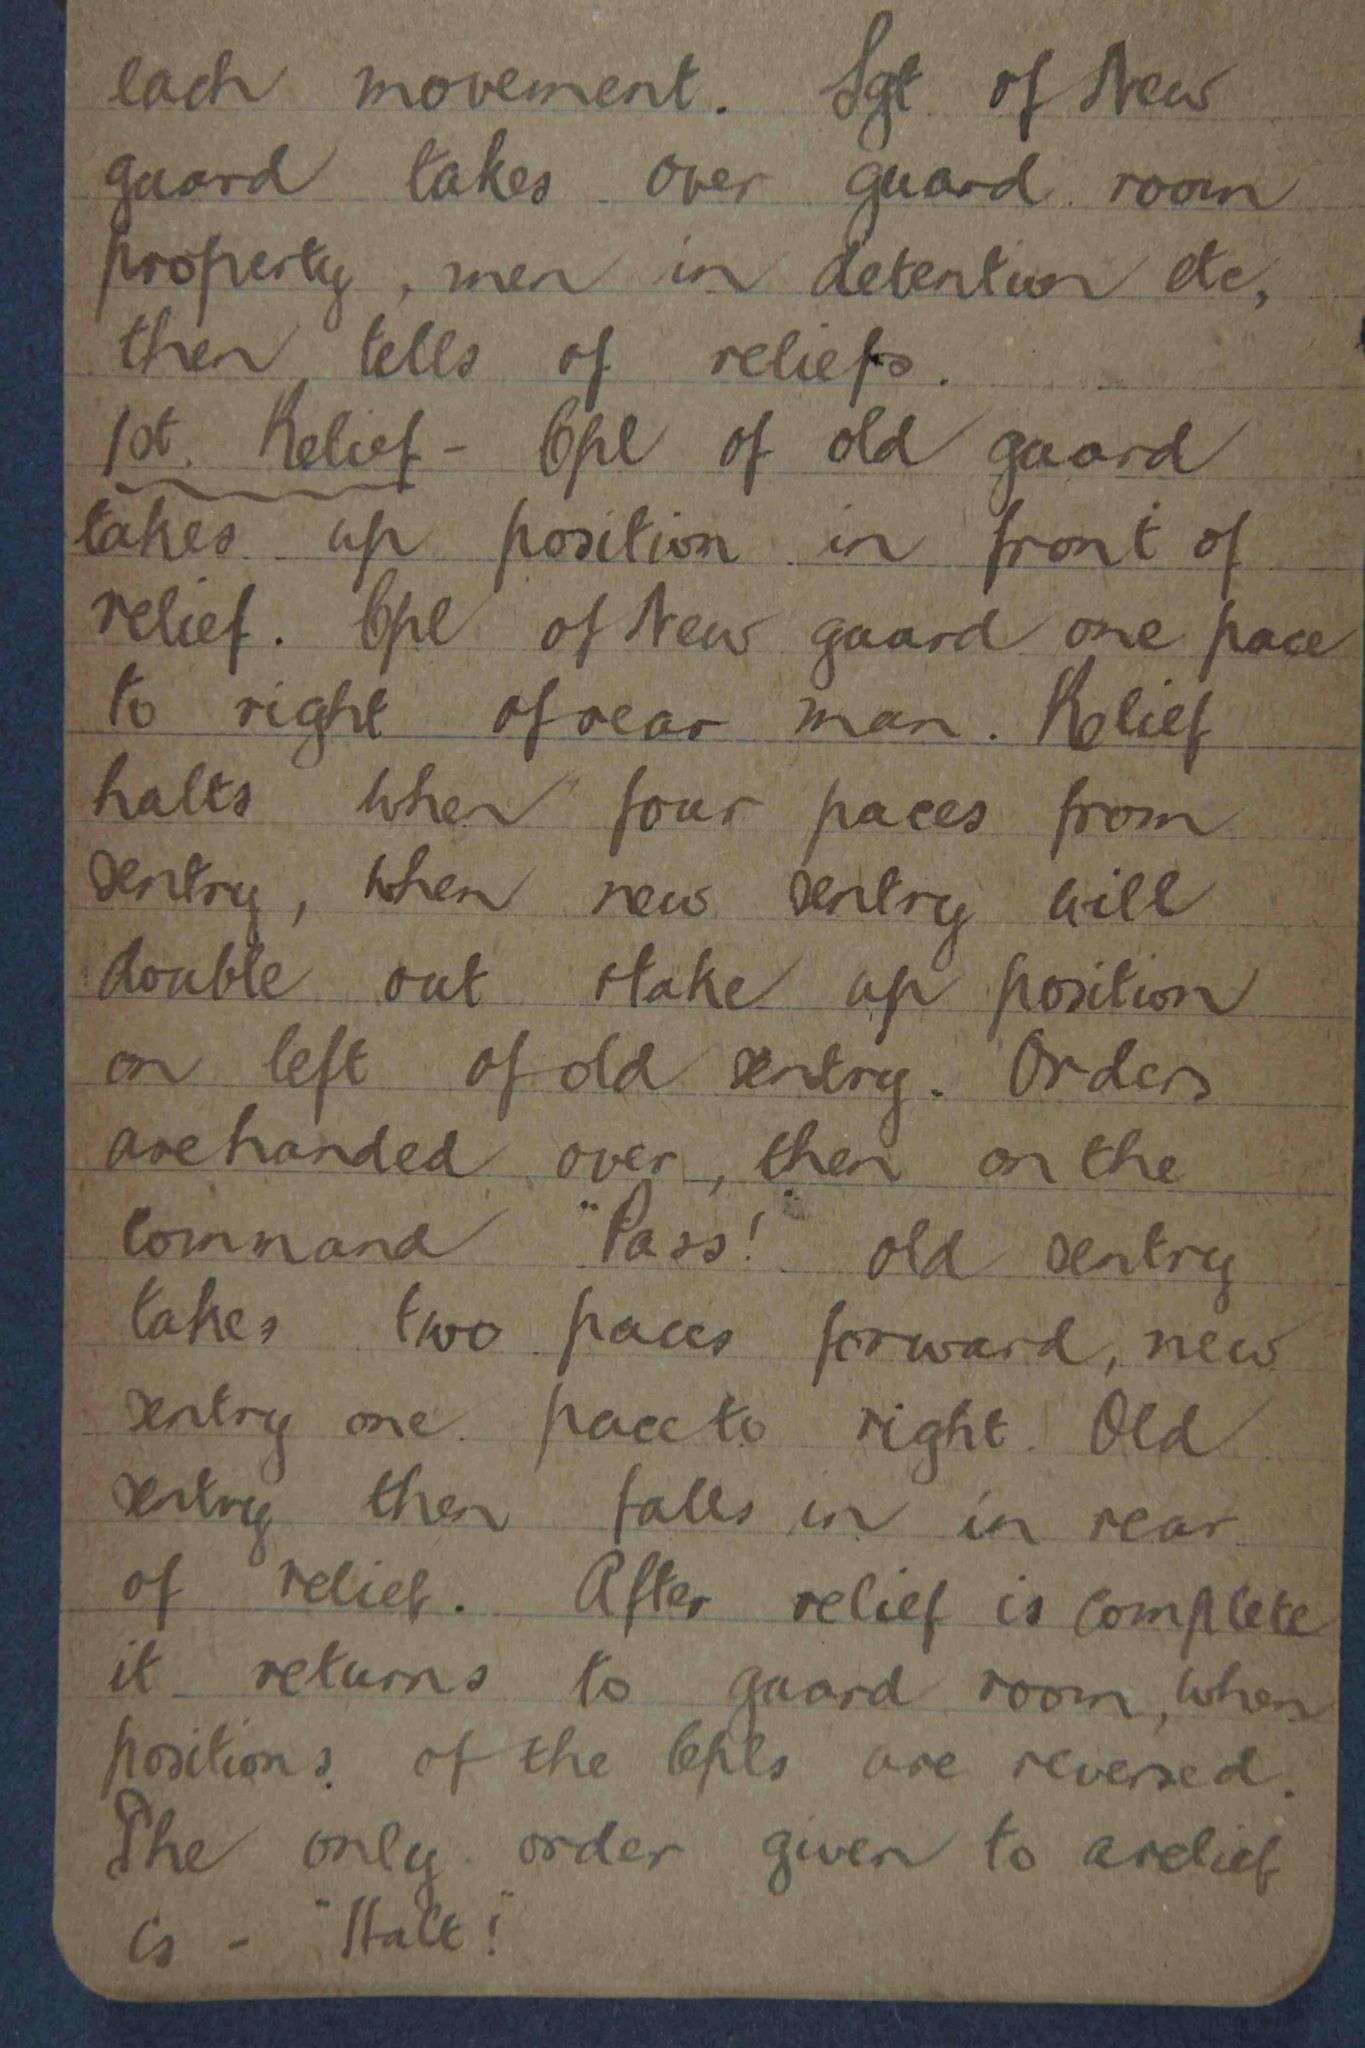 each movement. Sgt of New
guard takes over guard room
property, men in detention etc,
then tells of reliefs.
1st. Relief - Cpl of old guard
takes up position in front of
relief. Cpl of New guard one pace
to right of rear man. Relief
halts when four paces from
sentry, when new sentry will
double out & take up position
on left of old sentry. Orders
are handed over, then on the
command "Pass!" old sentry
takes two paces forward, new
sentry one pace to right. Old
sentry then falls in in rear
of relief. After relief is complete
it returns to guard room, when
positions of the Cpls are reversed.
The only order given to a relief
is - "Halt!"